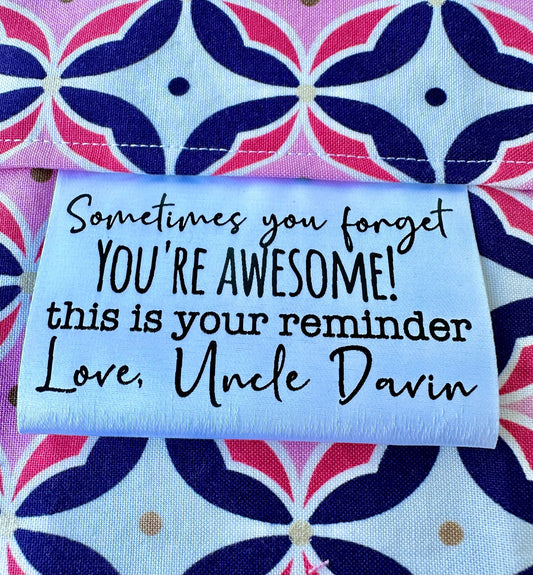 Sometimes you forget
YOU'RE AWESOME!
this is your reminder
Love, Uncle Davin